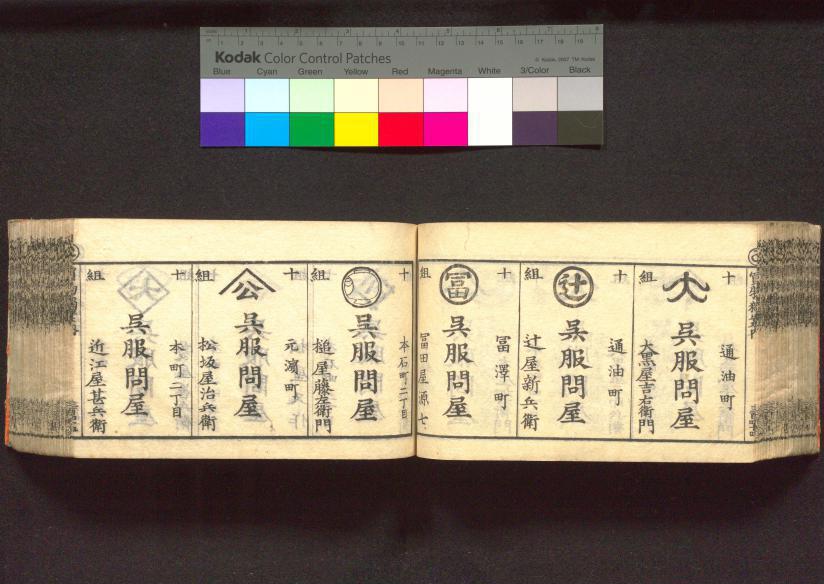 Kodak Color Control Patches
© Kodak, 2007 TM: Kodak
Blue Cyan Green Yellow Red Magenta White 3/Color Black
十組
大
通油町
呉服問屋
大黒屋吉右衛門
十組
辻
通油町
呉服問屋
辻屋新兵衛
十組
冨
冨澤町
呉服問屋
冨田屋源七
十組
本石町二丁目
呉服問屋
槌屋藤左衛門
十組
公
元濱町
呉服問屋
松坂屋治兵衛
十組
大
本町二丁目
呉服問屋
近江屋甚兵衛